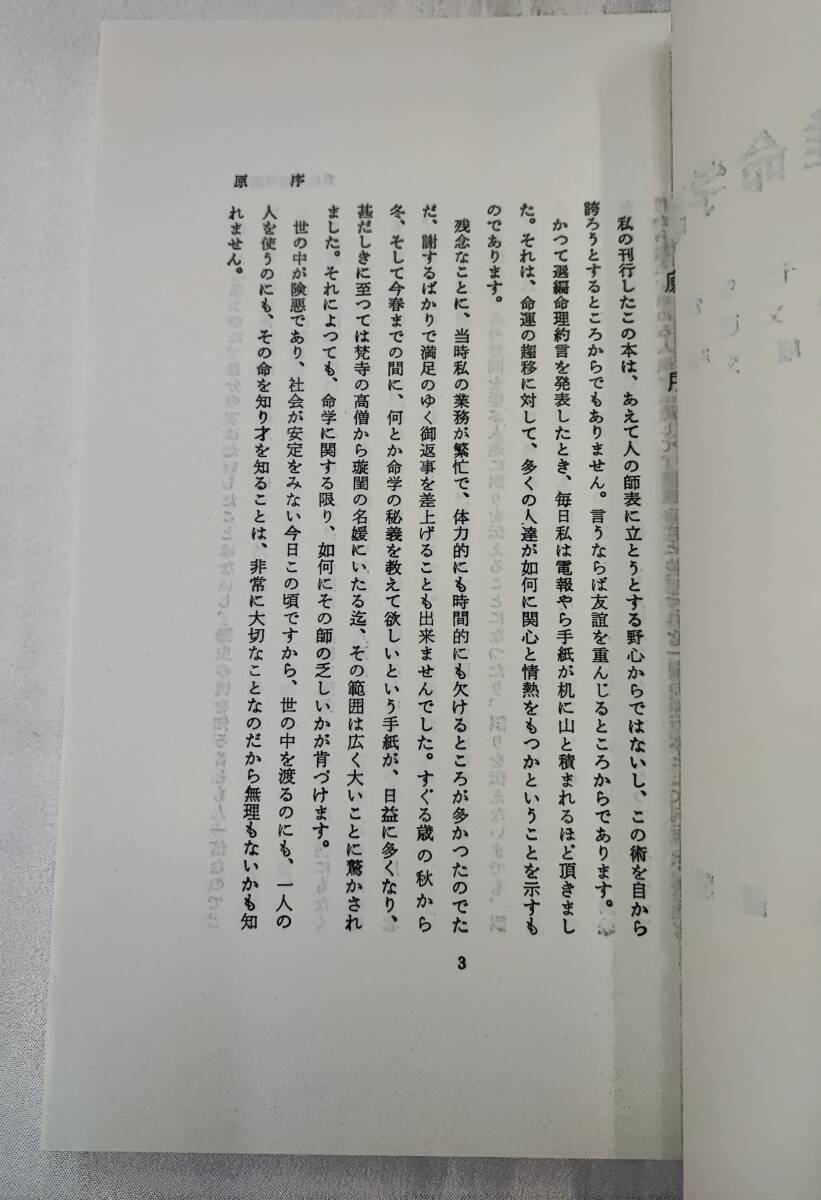 原序
私の刊行したこの本は、あえて人の師表に立とうとする野心からではないし、この術を自から
誇ろうとするところからでもありません。言うならば友誼を重んじるところからであります。
かつて選編命理約言を発表したとき、毎日私は電報やら手紙が机に山と積まれるほど頂きまし
た。それは、命運の趨移に対して、多くの人達が如何に関心と情熱をもつかということを示すも
のであります。
残念なことに、当時私の業務が繁忙で、体力的にも時間的にも欠けるところが多かつたのでた
だ、謝するばかりで満足のゆく御返事を差上げることも出来ませんでした。すぐる歳の秋から
冬、そして今春までの間に、何とか命学の秘義を教えて欲しいという手紙が、日益に多くなり、
甚だしきに至つては梵寺の高僧から璇閨の名媛にいたる迄、その範囲は広く大いことに驚かされ
ました。それによつても、命学に関する限り、如何にその師の乏しいかが肯づけます。
世の中が険悪であり、社会が安定をみない今日この頃ですから、世の中を渡るのにも、一人の
人を使うのにも、その命を知り才を知ることは、非常に大切なことなのだから無理もないかも知
れません。
3